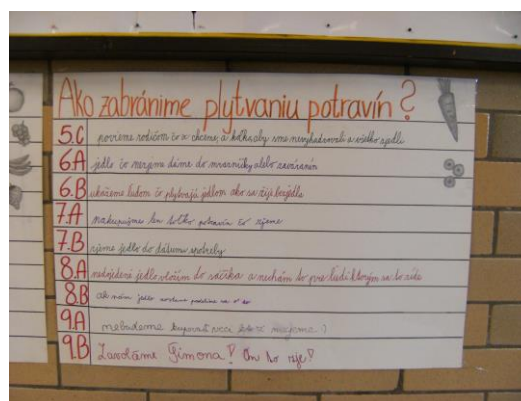 Ako zabránime plytvaniu potravín?
5.C povieme rodičom čo chceme, a koľko aby sme nevyhadzovali a všetko zjedli
6.A jedlo čo nezjeme dáme do mrazničky alebo zavárame
6.B ukážeme ľuďom čo plytvajú jedlom ako sa žije bez jedla
7.A nakupujme len toľko potravín čo zjeme
7.B zjeme jedlo do dátumu spotreby
8.A nedojedené jedlo vložím do sáčka a nechám to pre ľudí ktorým sa to zíde
8.B ak nám jedlo
9.A nebudeme kupovať veci ktoré nezjeme!
9.B Zavoláme Šimona! On to zje!